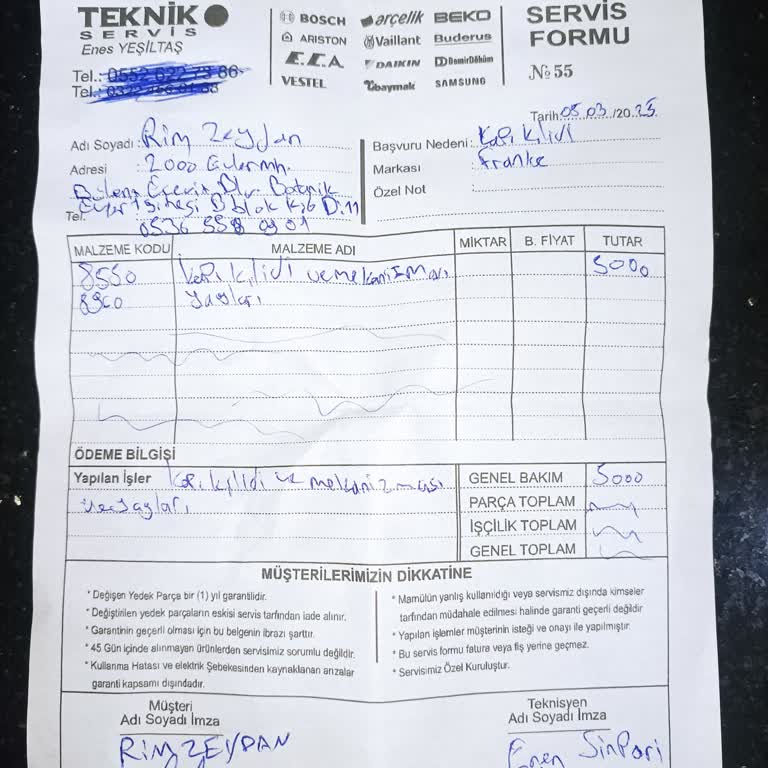 TEKNİK
SERVİS
Enes YEŞİLTAŞ
Tel.: 0552 622 73 86
Tel.:
BOSCH arçelik BEKO
ARISTON Vaillant Buderus
E.C.A. DAIKIN DemirDöküm
VESTEL baymak SAMSUNG
SERVİS
FORMU
№ 55
Tarih: 05.03/2025
Adı Soyadı : Rim Zeydan
Adresi : 2000 Evler mh.
Bülent Ecevit Blv. Botanik
Sitesi B blok K:6 D.11
Tel. : 0536 558 0901
Başvuru Nedeni : Kapı kilidi
Markası : Franke
Özel Not :
MALZEME KODU MALZEME ADI MİKTAR B. FİYAT TUTAR
8550 Kapı kilidi ve mekanizması 5000
yayları
ÖDEME BİLGİSİ
Yapılan İşler Kapı kilidi ve mekanizması
ve yayları
GENEL BAKIM 5000
PARÇA TOPLAM
İŞÇİLİK TOPLAM
GENEL TOPLAM
MÜŞTERİLERİMİZİN DİKKATİNE
* Değişen Yedek Parça bir (1) yıl garantilidir.
* Değiştirilen yedek parçaların eskisi servis tarfından iade alınır.
* Garantinin geçerli olması için bu belgenin ibrazı şarttır.
* 45 Gün içinde alınmayan ürünlerden servisimiz sorumlu değildir.
* Kullanma Hatası ve elektrik Şebekesinden kaynaklanan arızalar
garanti kapsamı dışındadır.
* Mamülün yanlış kullanıldığı veya servisimiz dışında kimseler
tarfından müdahale edilmesi halinde garanti geçerli değildir
* Yapılan işlemler müşterinin isteği ve onayı ile yapılmıştır.
* Bu servis formu fatura veya fiş yerine geçmez.
* Servisimiz Özel Kuruluştur.
Müşteri
Adı Soyadı İmza
RİM ZEYDAN
Teknisyen
Adı Soyadı İmza